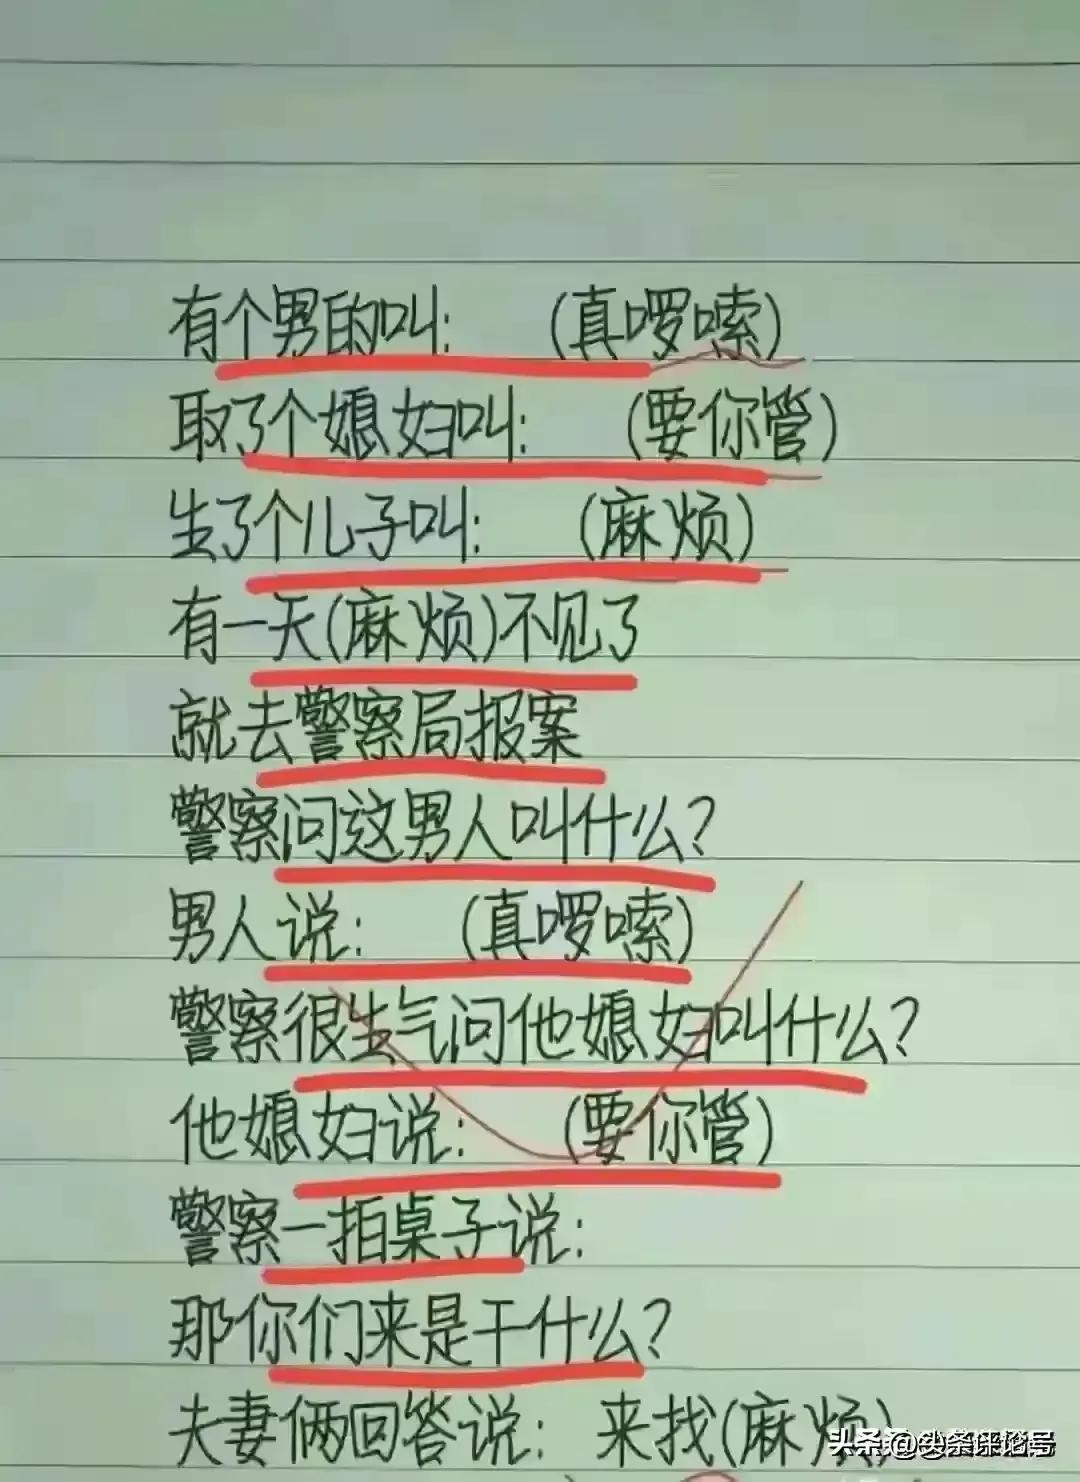 有个男的叫: (真啰嗦)
取了个媳妇叫: (要你管)
生了个儿子叫: (麻烦)
有一天(麻烦)不见了
就去警察局报案
警察问这男人叫什么?
男人说: (真啰嗦)
警察很生气问他媳妇叫什么?
他媳妇说: (要你管)
警察一拍桌子说:
那你们来是干什么?
夫妻俩回答说: 来找(麻烦)
头条@头条评论号